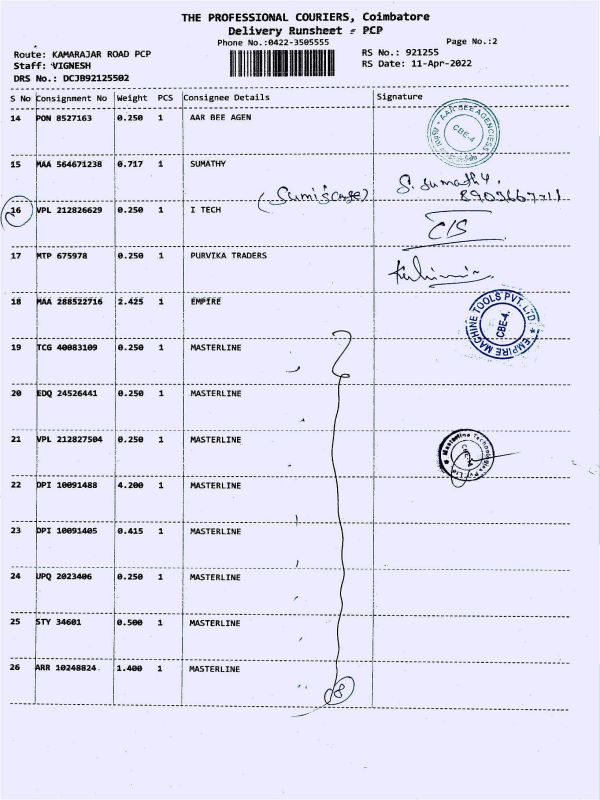 THE PROFESSIONAL COURIERS, Coimbatore
Delivery Runsheet - PCP
Phone No.:0422-3505555
Page No.:2
Route: KAMARAJAR ROAD PCP
RS No.: 921255
Staff: VIGNESH
RS Date: 11-Apr-2022
DRS No.: DCJB92125502
S No Consignment No Weight PCS Consignee Details Signature
14 PON 8527163 0.250 1 AAR BEE AGEN
AAR BEE AGENCIESS CBE-4
15 MAA 564671238 0.717 1 SUMATHY
S. Sumathy.
8903667711
16 VPL 212826629 0.250 1 I TECH
C/S
17 MTP 675978 0.250 1 PURVIKA TRADERS
18 MAA 288522716 2.425 1 EMPIRE
EMPIRE MACHINE TOOLS PVT. LTD. CBE-4.
19 TCG 40083109 0.250 1 MASTERLINE
20 EDQ 24526441 0.250 1 MASTERLINE
21 VPL 212827504 0.250 1 MASTERLINE
Masterline Technologies Pvt Ltd CBE-4
22 DPI 10091488 4.200 1 MASTERLINE
23 DPI 10091405 0.415 1 MASTERLINE
24 UPQ 2023406 0.250 1 MASTERLINE
25 STY 34601 0.500 1 MASTERLINE
26 ARR 10248824 1.400 1 MASTERLINE
8